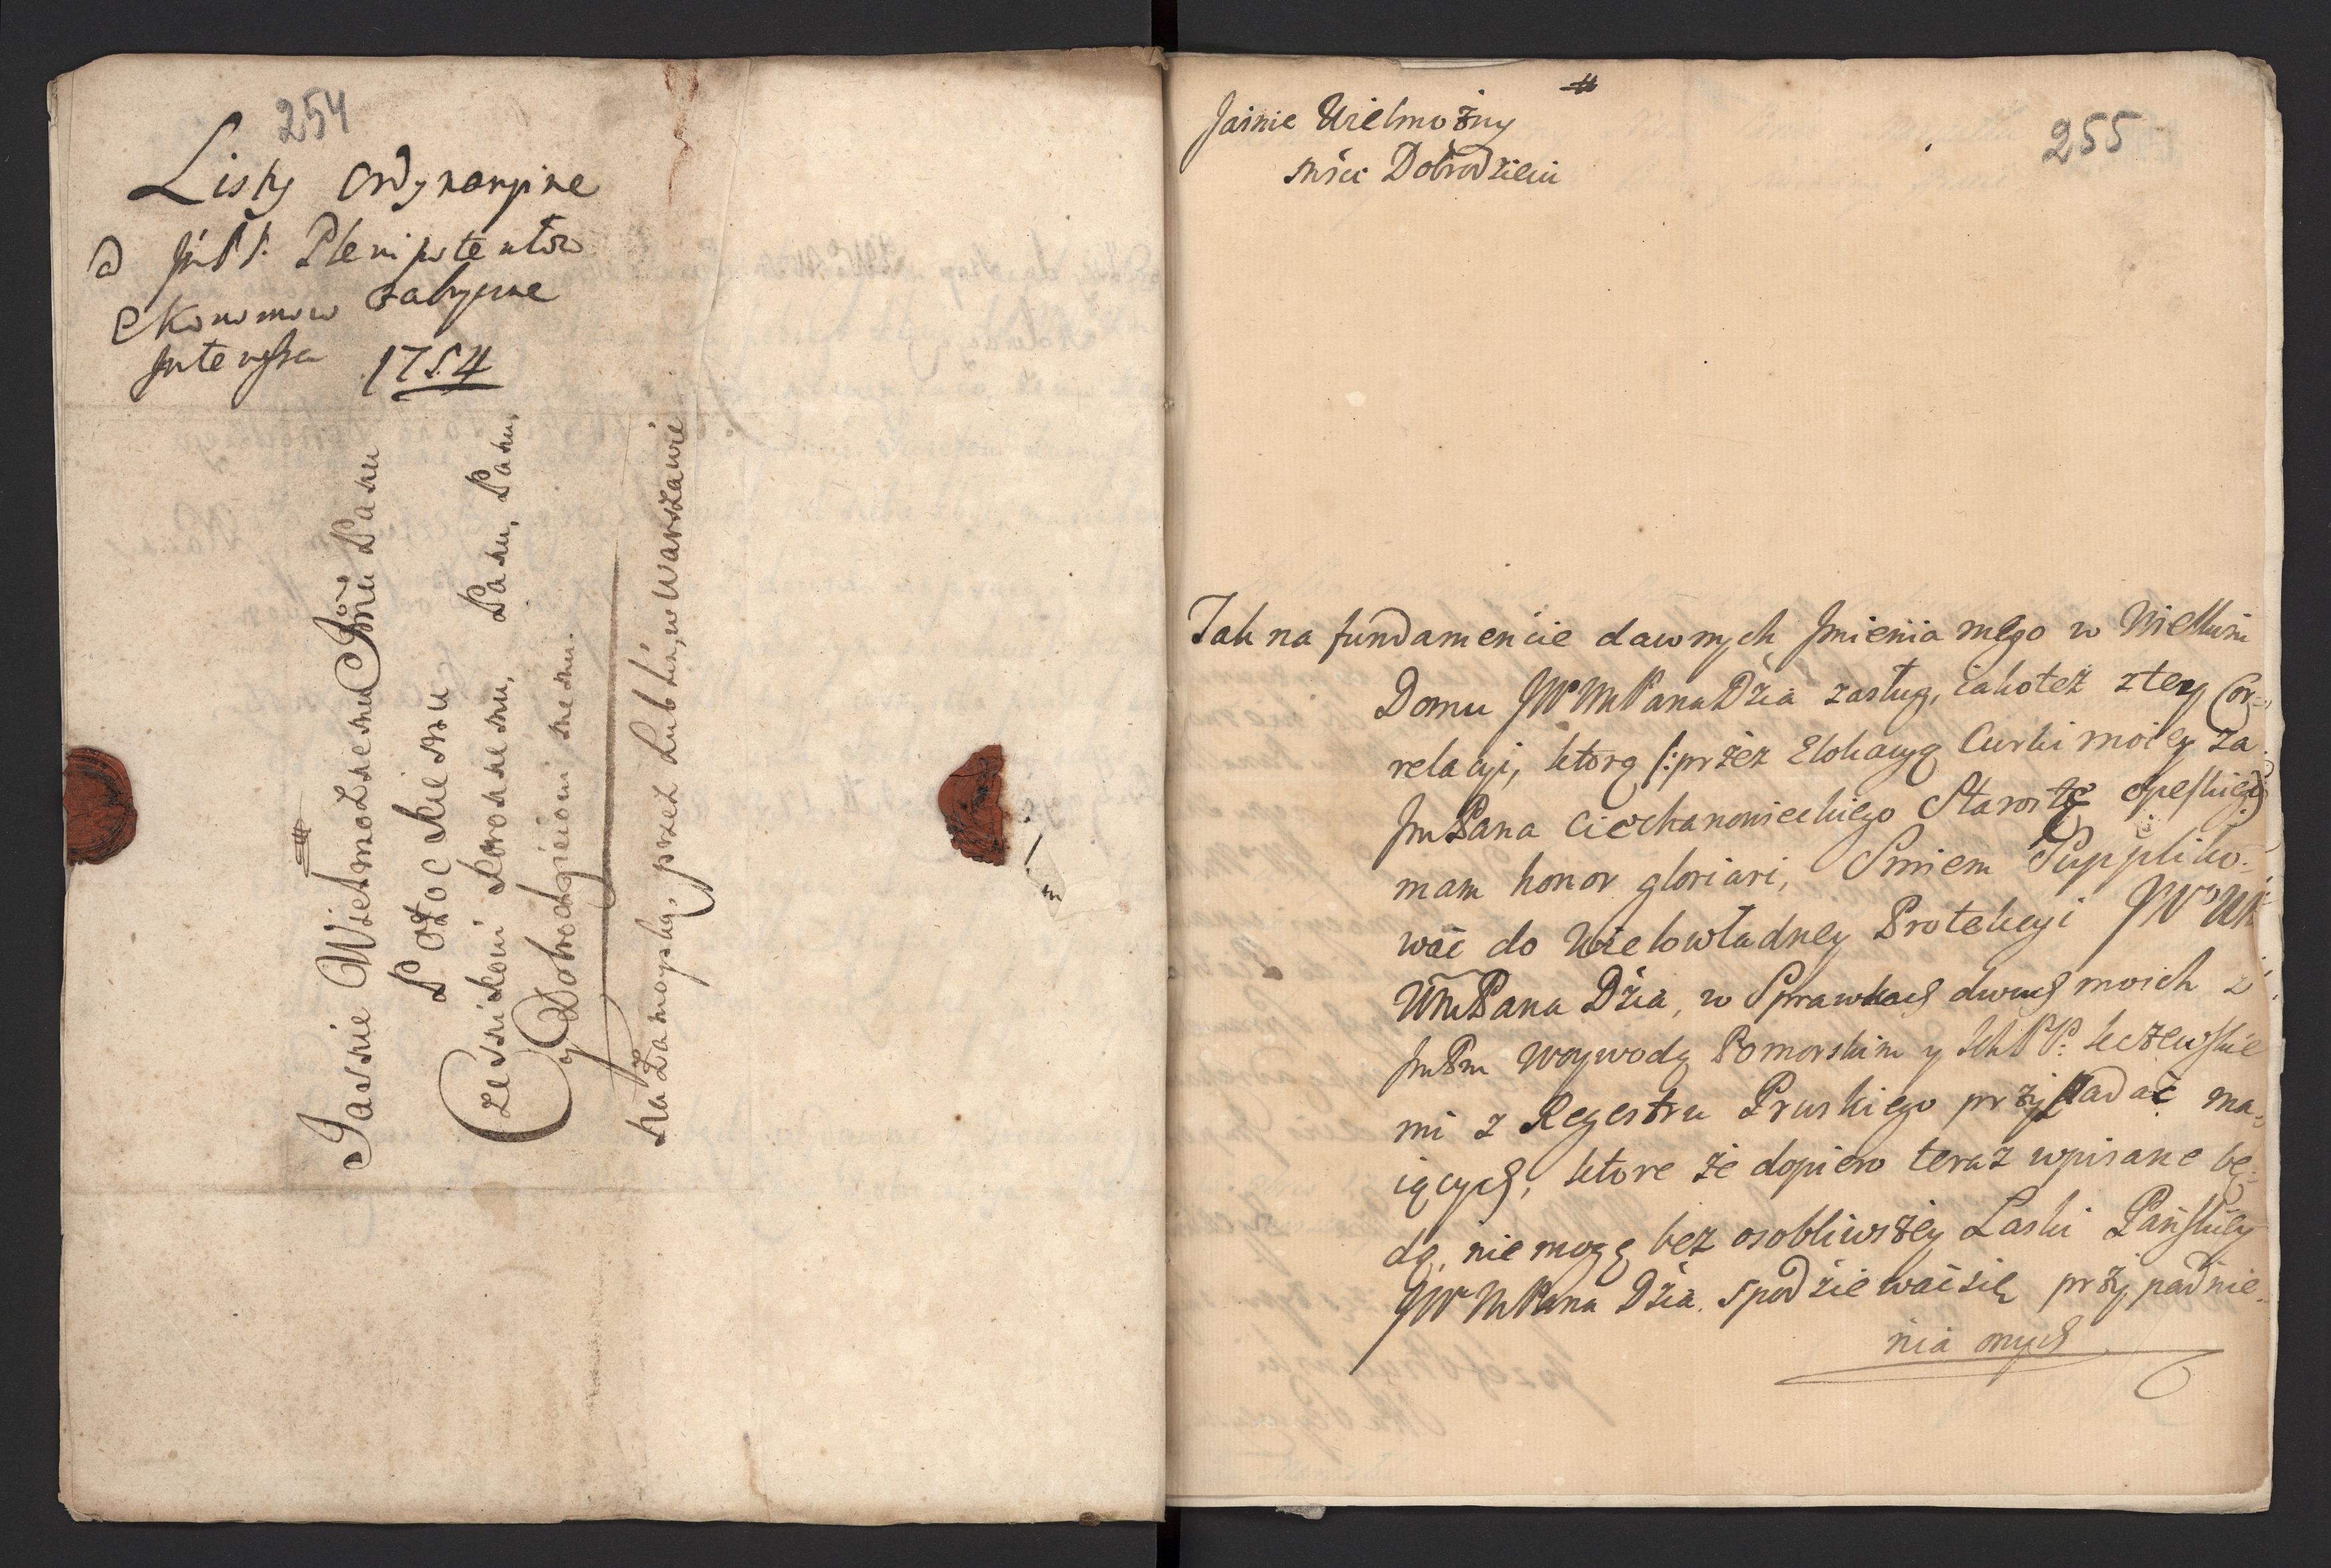 254
Listy Ordynaryine
Plenipotentow
Ekonomow
1754
Jasnie Wielmoznemu Jmci Panu
Potockiemu
Czesnikowi Koronnemu, Panu, Panu,
y Dobrodzieiowi memu.
na Zamoyską, przez Lublin, w Warszawie
255
Jasnie Wielmożny
Mści Dobrodzieiu
Tak na fundamencie dawnych Jmienia mego w Wielkim
Domu JWMPana Dźia zasług, iakoteż z tey Cor-
relacyi, ktorą /:przez Elokacyą Curki moiey za
JmPana Ciechanowieckiego Starostę Opeskieg:)
mam honor gloriari, Smiem Suppliko-
wać do Wielowładney Protekcyi JW
WMPana Dźia, w Sprawkach dwuch moich z
JmPm Woywodą Pomorskim y
mi z Regestru Pruskiego przypadać ma-
iących, ktore że dopiero teraz wpisane bę-
dą, nie mogę bez osobliwszey Łaski Pańskiey
JWMPana Dźia. spodziewać się przypadnie-
nia onych